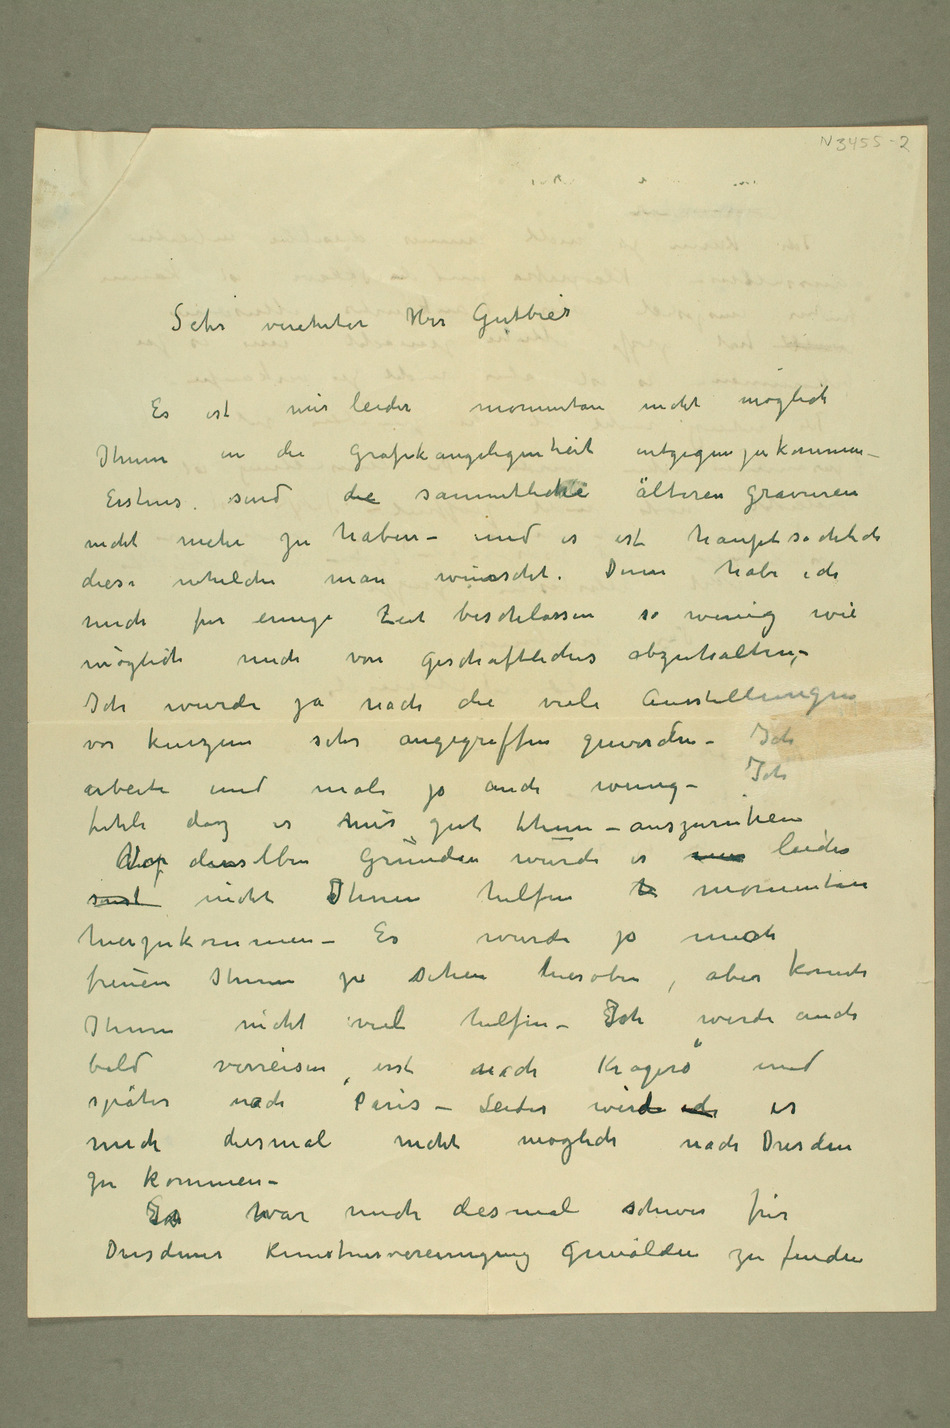 N 3455-2
Sehr verehrter Herr Gutbier
Es ist mir leider momentan nicht möglich
Ihnen in die Grafikangelegenheit entgegenzukommen –
Erstens sind die sammtliche älteren Gravüren
nicht mehr zu haben – und es ist hauptsachlich
diese whelche man wünscht. Denn habe ich
mich fur einige Zeit beschlossen so wenig wie
möglich mich von Geschaftliches abzuhalten, –
Ich wurde ja nach die viele Ausstellungen
vor kurzem sehr angegriffen geworden – Ich
arbeite und male ja auch wenig – Ich
fühle daz es mir gut thun – auszuruhen
Aus denselben Grunden wurde es nur leider
sonst nicht Ihnen helfen h momentan
herzukommen – Es wurde ja mich
freuen Ihnen zu sehen hieroben, aber konnte
Ihnen nicht viel helfen – Ich werde auch
bald verreisen, erst nach Kragerö und
später nach Paris – Leider wird ich es
mich diesmal nicht moglich nach Dresden
zu kommen –
Es war mich diesmal schwer für
Dresdener Kunstnervereinigung Gemälden zu finden